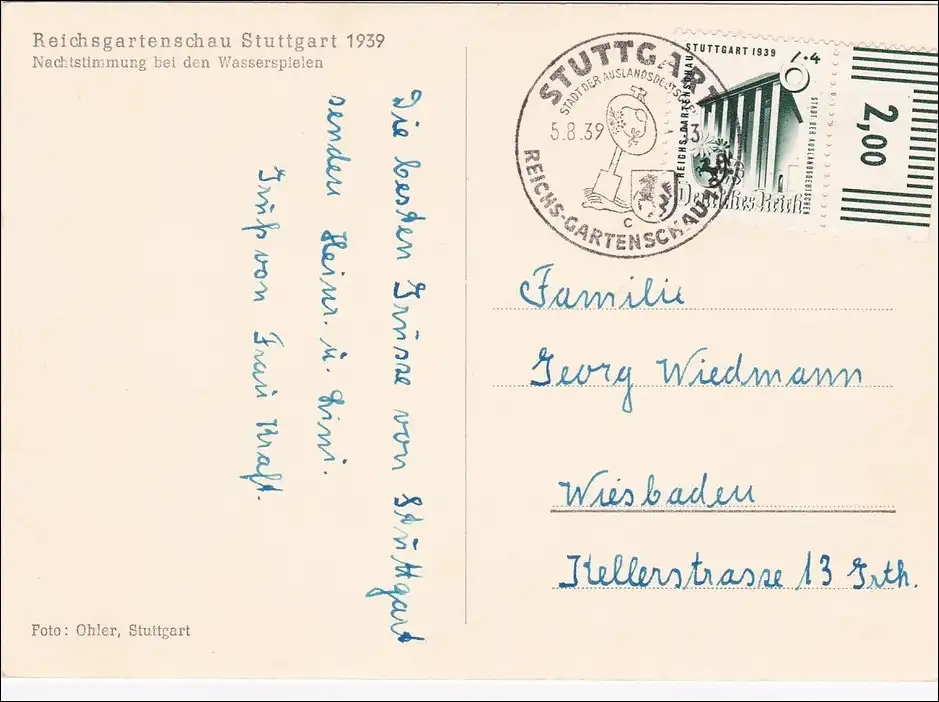 Reichsgartenschau Stuttgart 1939
Nachtstimmung bei den Wasserspielen
Die besten Grüsse von Stuttgart
senden Heinr. u. Lini.
Gruß von Frau Kraft.
Foto: Ohler, Stuttgart
STUTTGART
STADT DER AUSLANDSDEUTSCHEN
5.8.39
c
REICHS-GARTENSCHAU
STUTTGART 1939
REICHS-GARTENSCHAU
STADT DER AUSLANDSDEUTSCHEN
Deutsches Reich
2,00
Familie
Georg Wiedmann
Wiesbaden
Kellerstrasse 13